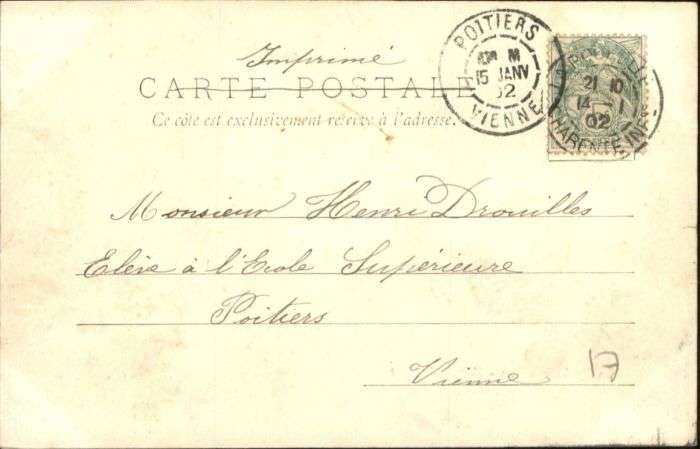 Imprimé
CARTE POSTALE
Ce côté est exclusivement réservé à l'adresse.
POITIERS
15 JANV
02
VIENNE
21 10
14 1
02
CHARENTE-INF
Monsieur Henri Drouilles
Elève à l'Ecole Supérieure
Poitiers
Vienne
17